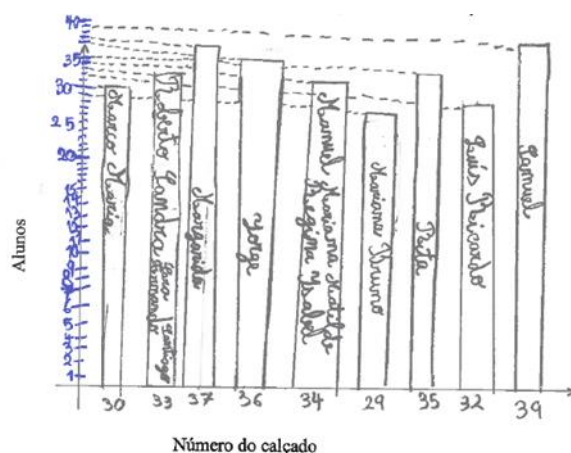 40
35
30
20
Alunos
Marco Maria
Roberto Sandra
Sara Santiago
Fernando
Margarida
Jorge
Manuel Mariana Matilde
Regina Ysabel
Mariana Bruno
Rita
Luís Ricardo
Samuel
30 33 37 36 34 29 35 32 39
Número do calçado